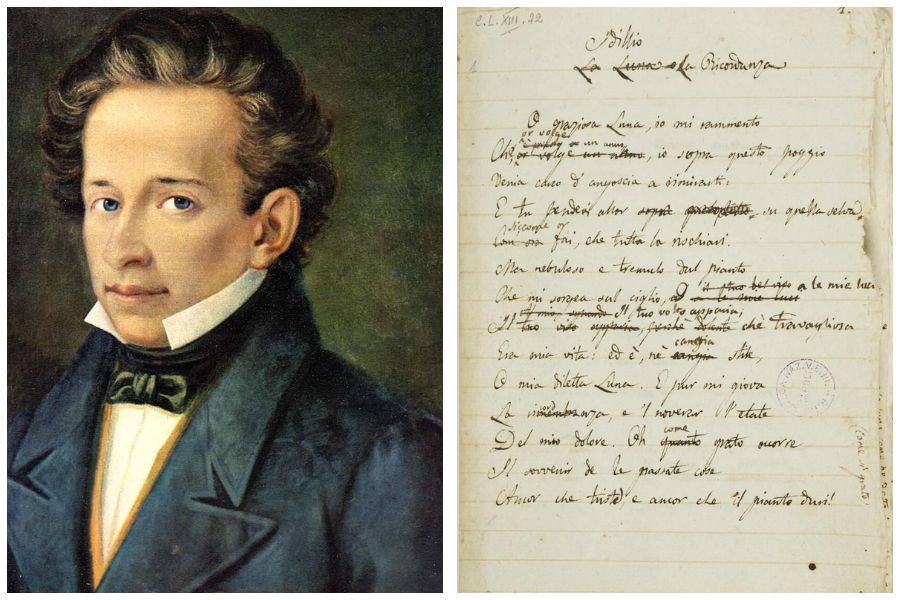 C.L.XIII.22
1.
Idillio
La Luna o la Ricordanza
O graziosa Luna, io mi rammento
or volge
un anno,
Che, or volge un anno, io sopra questo poggio
Venia carco d'angoscia a rimirarti:
E tu pendevi allor sopra su quella selva,
Siccome or
Com ora fai, che tutta la rischiari.
Ma nebuloso e tremulo dal pianto
il tuo bel viso
Che mi sorgea sul ciglio, a le mie luci a le mie luci
Il tuo volto apparia,
Il tuo viso apparia, perchè dolente chè travagliosa
cangia
Era mia vita: ed è, nè cangia stile,
O mia diletta Luna. E pur mi giova
La ricordanza, e 'l noverar l'etate
come
Del mio dolore. Oh quanto grato occorre
Il sovvenir de le passate cose
Ancor che triste, e ancor che il pianto duri!